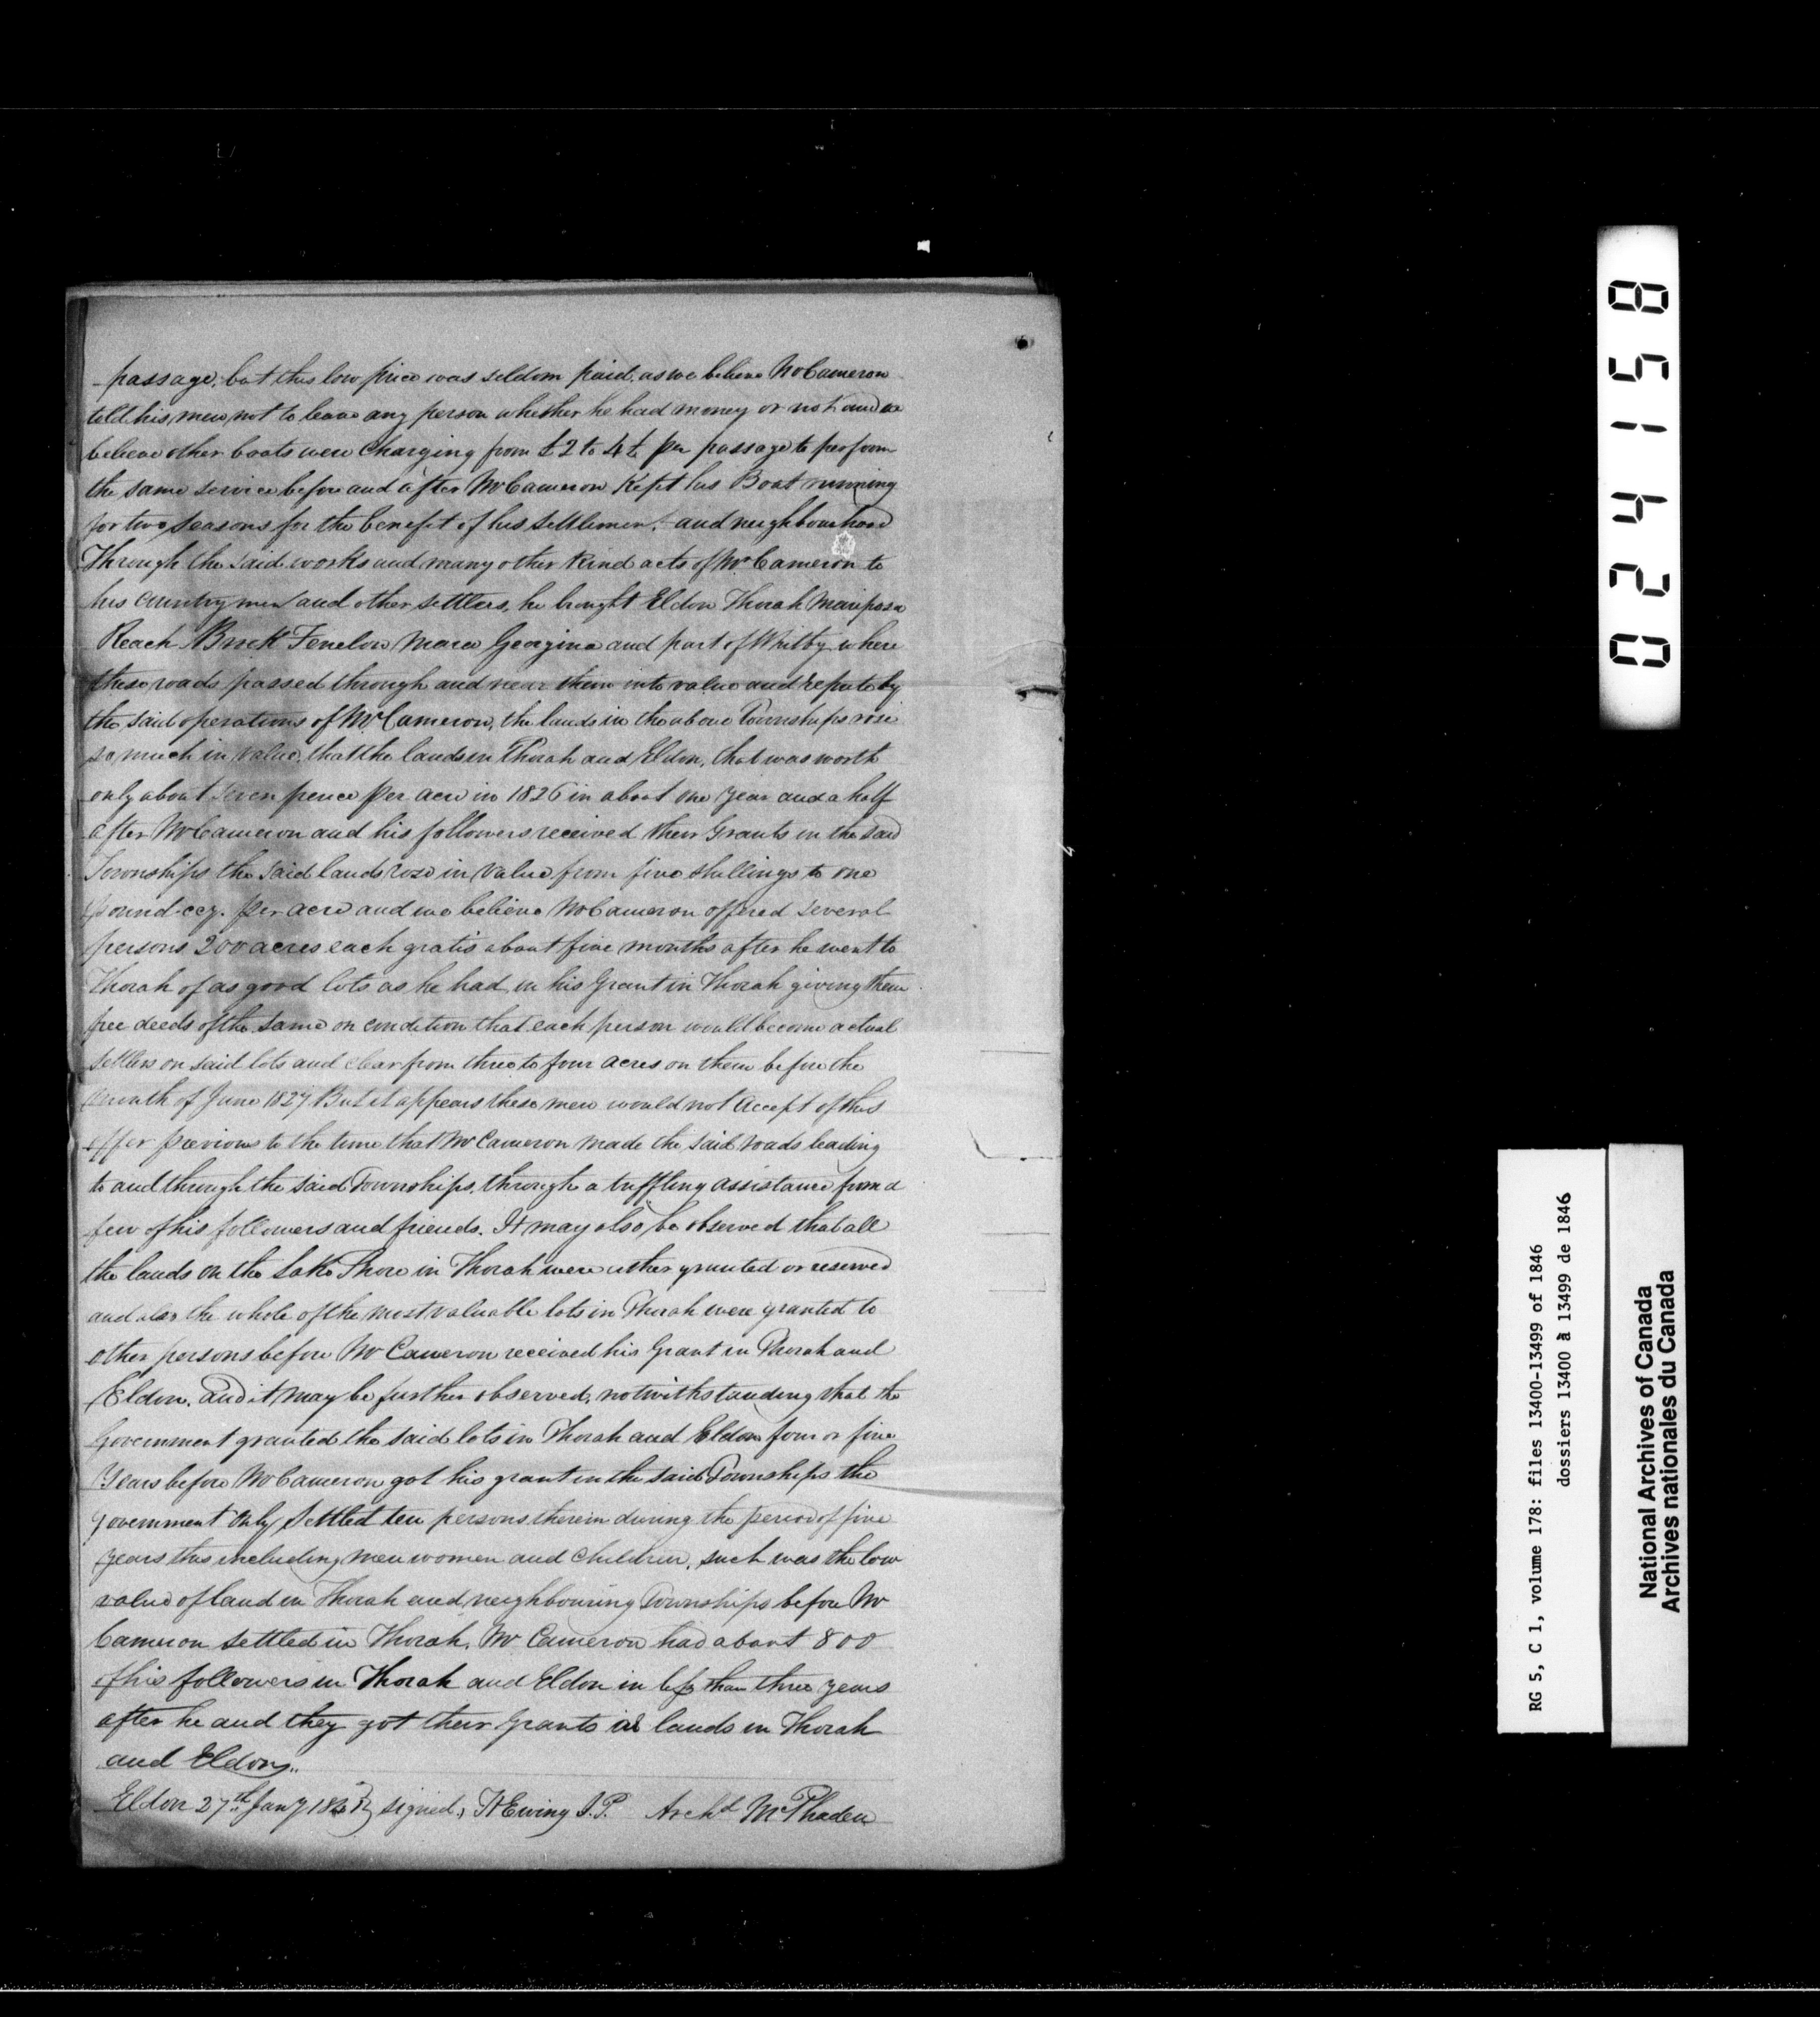 passage, but this low price was seldom paid, as we believe Mr Cameron
told his men not to leave any person whether he had money or not and we
believe other boats were Charging from £2 to 4£ per passage to perform
the same service before and after Mr Cameron Kept his Boat running
for two seasons for the benefit of his settlement and neighbourhood
Through the said works and many other kind acts of Mr Cameron to
his Country men and other settlers, he brought Eldon Thorah Mariposa
Reach Brock Fenelon Mara Georgina and part of Whitby where
these roads passed through and near them into value and repute by
the said operations of Mr Cameron, the lands in the above Townships rose
so much in value, that the lands in Thorah and Eldon, that was worth
only about seven pence per acre in 1826 in about one year and a half
after Mr Cameron and his followers received their Grants in the said
Townships the said lands rose in value from five shillings to one
pound ccy. per acre and we believe Mr Cameron offered several
persons 200 acres each gratis about five months after he went to
Thorah of as good lots as he had in his Grant in Thorah giving them
free deeds of the same on condition that each person would become actual
settlers on said lots and clear from three to four acres on them before the
month of June 1827 But it appears these men would not accept of this
offer previous to the time that Mr Cameron made the said roads leading
to and through the said Townships, through a triffling assistance from a
few of his followers and friends. It may also be observed that all
the lands on the Lake Shore in Thorah were either granted or reserved
and also the whole of the most valuable lots in Thorah were granted to
other persons before Mr Cameron received his Grant in Thorah and
Eldon, and it may be further observed, notwithstanding that the
Government granted the said lots in Thorah and Eldon four or five
Years before Mr Cameron got his grant in the said Townships the
government only Settled ten persons therein during the period of five
years this including men women and Children, such was the low
value of land in Thorah and neighbouring Townships before Mr
Cameron settled in Thorah. Mr Cameron had about 800
of his followers in Thorah and Eldon in less than three years
after he and they got their Grants lands in Thorah
and Eldon..
Eldon 27th Jany signed, Ewing J.P. Archd McPhaden
024158
RG 5, C 1, volume 178: files 13400-13499 of 1846
dossiers 13400 à 13499 de 1846
National Archives of Canada
Archives nationales du Canada